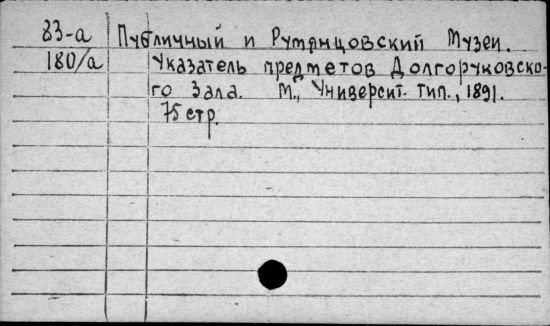 83-а Публичный и Румянцовский Музеи.
180/а Указатель предметов Долгоруковско-
го Зала. М., Университ. тип., 1891.
75 стр.